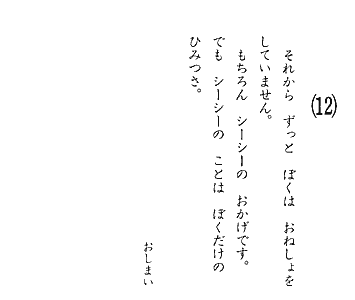 (12)
それから　ずっと　ぼくは　おねしょを
していません。
もちろん　シーシーの　おかげです。
でも　シーシーの　ことは　ぼくだけの
ひみつさ。
おしまい